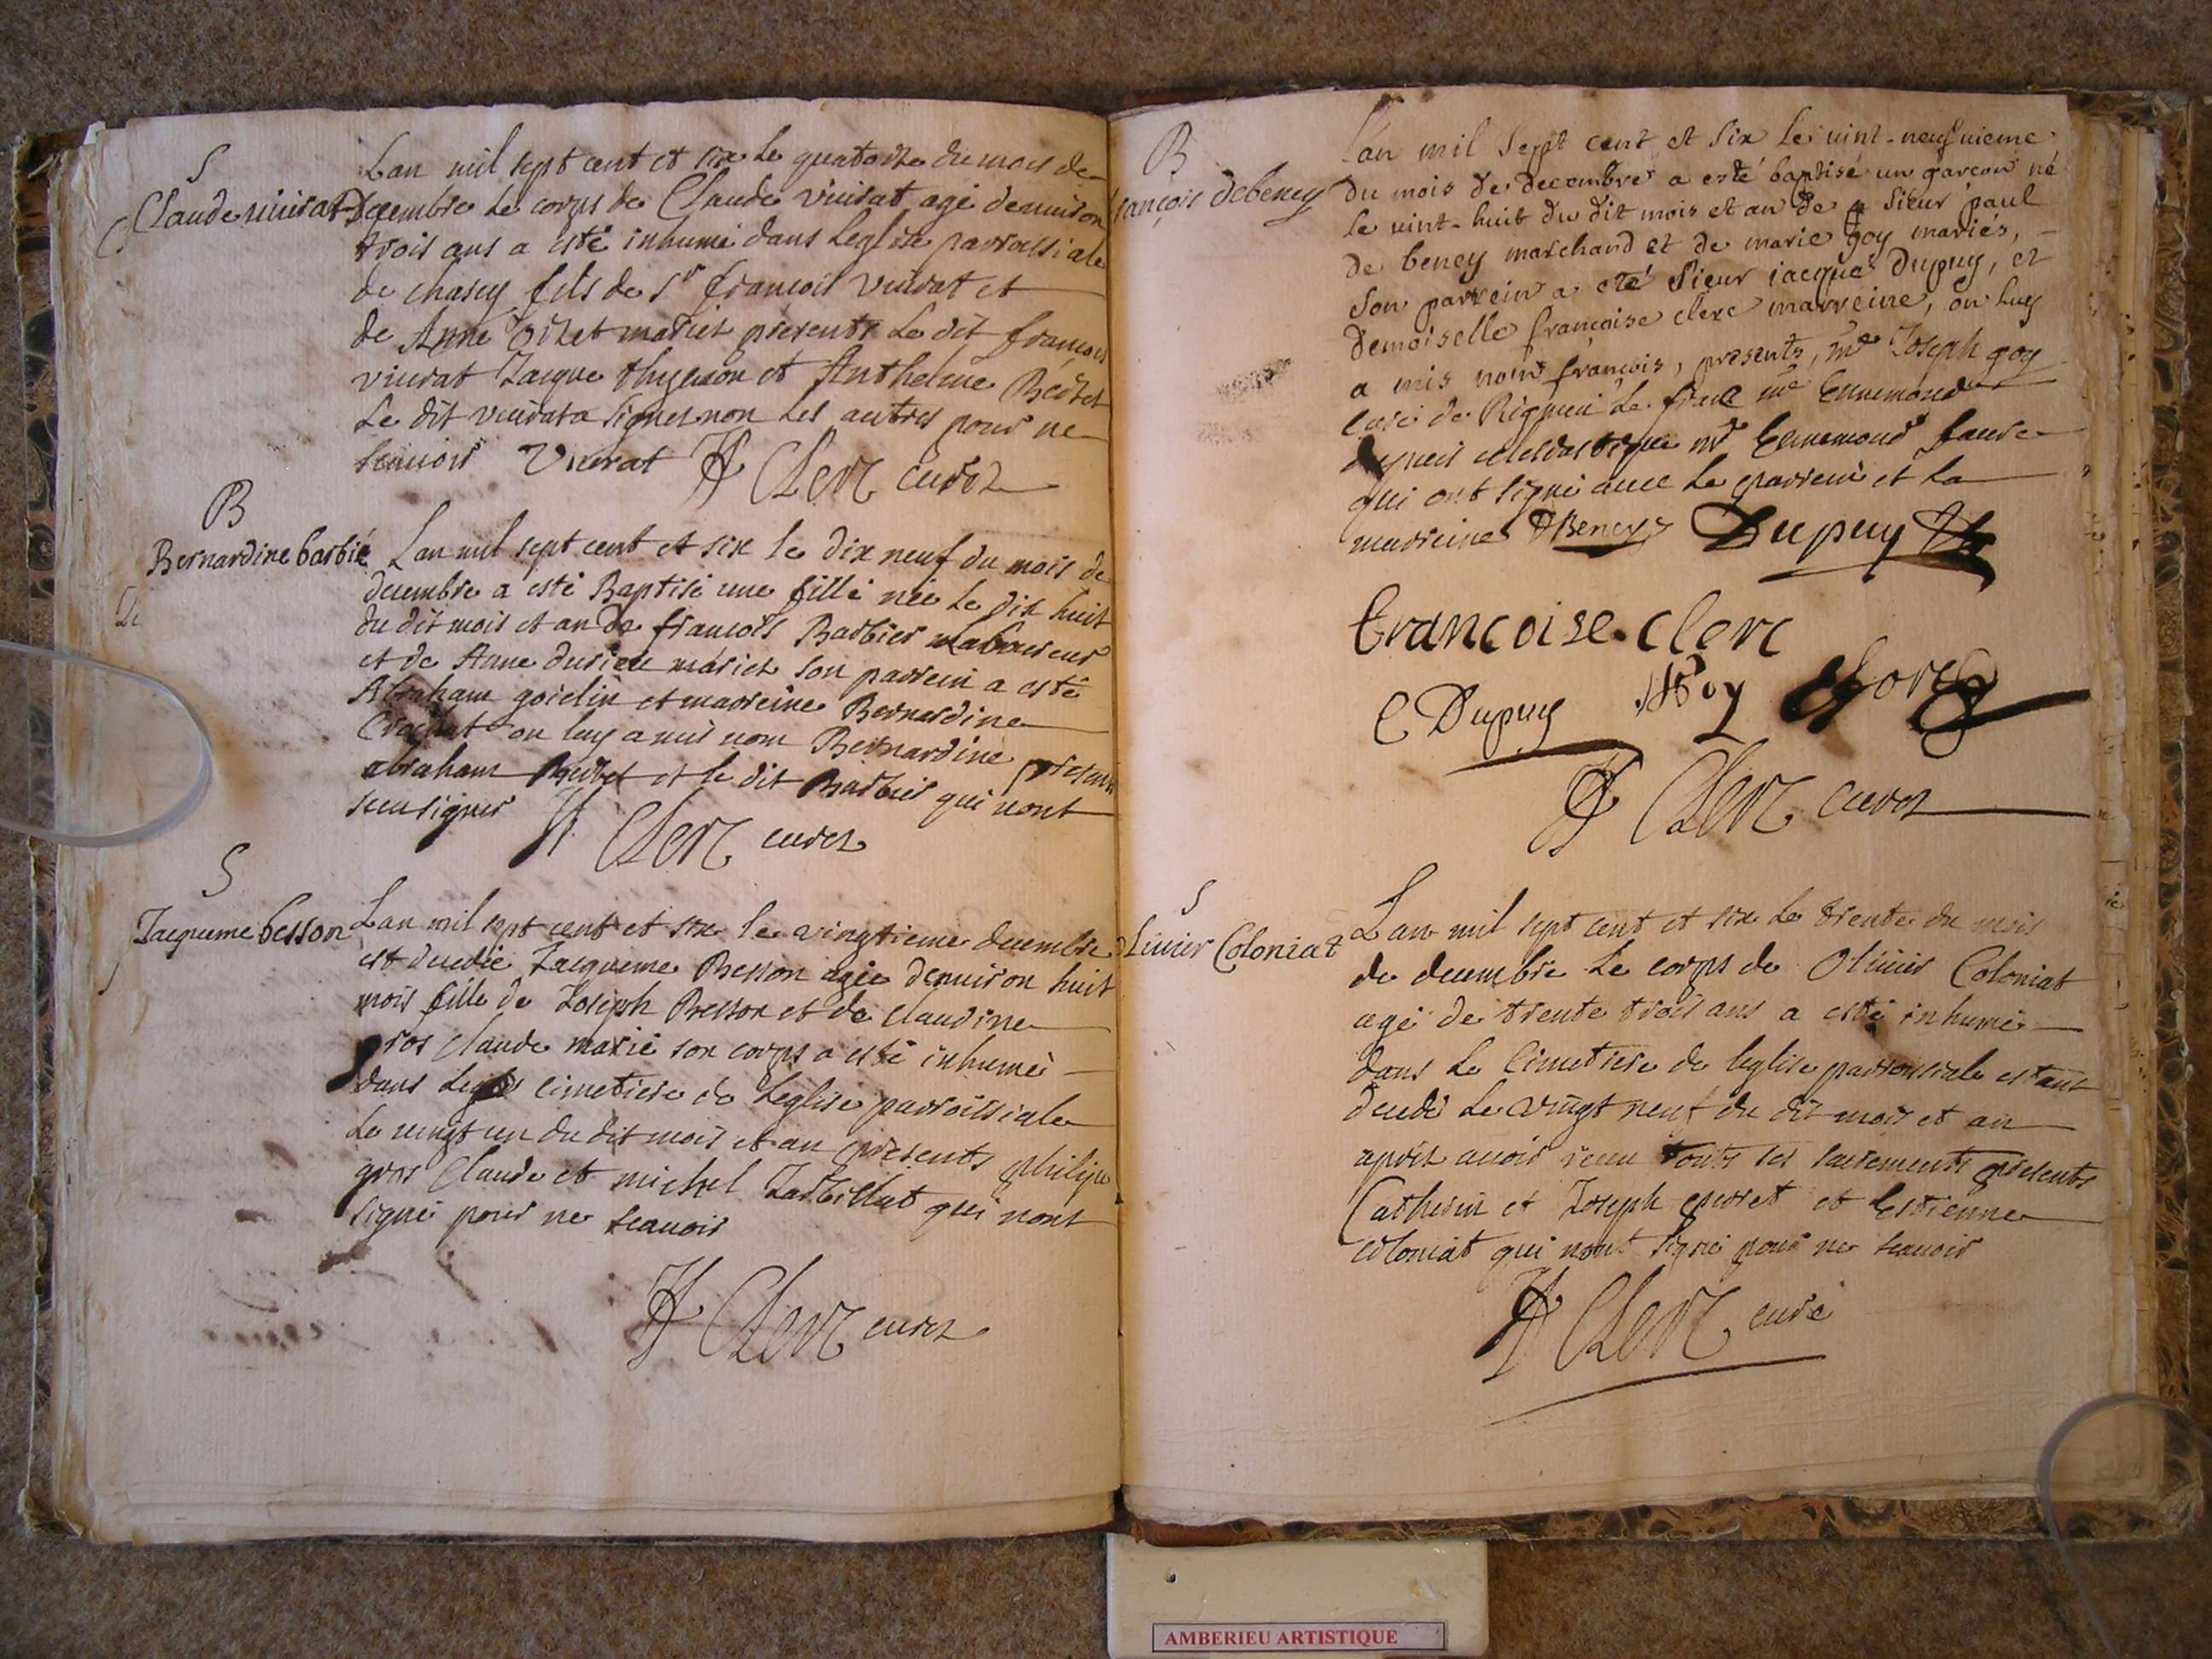 S
Claude vivirat
Lan mil sept cent et six le quatorze du mois de
decembre le corps de Claude vivirat agé denuiron
trois ans a esté inhumé dans leglise parroissiale
de chasey fils de Sr françois vivirat et
de Anne mariez presents le dit françois
vivirat Jacque et Anthelme
le dit vivirat a signer non les autres pour ne
scauoir Viuirat Clerc curez
B
Bernardine barbié
Lan mil sept cent et six le dix neuf du mois de
decembre a esté Baptisé une fille née le dix huit
du dit mois et an de françois Barbier laboureur
et de Anne mariez son parrein a esté
Abraham goiclin et marreine Bernardine
on luy a mis nom Bernardine presents
abraham et le dit Barbier qui nont
sceu signer Clerc curez
S
Jacqueme besson
Lan mil sept cent et six le vingtieme decembre
est decedée Jacqueme Besson agée denuiron huit
mois fille de Joseph Besson et de claudine
gros claude marié son corps a esté inhumé
dans le cimetiere de leglise parroissiale
le vingt un du dit mois et an presents philipe
gros Claude et michel qui nont
signé pour ne scauoir
Clerc curez
B
françois debeney
Lan mil sept cent et six le vint-neufvieme
du mois de decembre a esté baptisé un garcon né
le vint-huit du dit mois et an de sieur paul
de beney marchand et de marie goy mariés,
son parrein a eté sieur iacque Dupuy, et
demoiselle françoise clerc marreine, on luy
a mis nom françois, presents, mre Joseph goy
curé de Rignieu le mre Ennemond
mre Ennemond faure
qui ont signé auec le parrein et la
marreine DBeney Dupuy
francoise. clerc
E Dupuy Goy
Clerc curez
S
Oliuier Coloniat
Lan mil sept cent et six le trente du mois
de decembre le corps de Oliuier Coloniat
agé de trente trois ans a esté inhumé
dans le Cimetiere de leglise parroissiale estant
decedé le vingt neuf du dit mois et an
aprés auoir receu touts ses sacrements presents
Catherin et Joseph et Estienne
coloniat qui nont signé pour ne scauoir
Clerc curé
AMBERIEU ARTISTIQUE